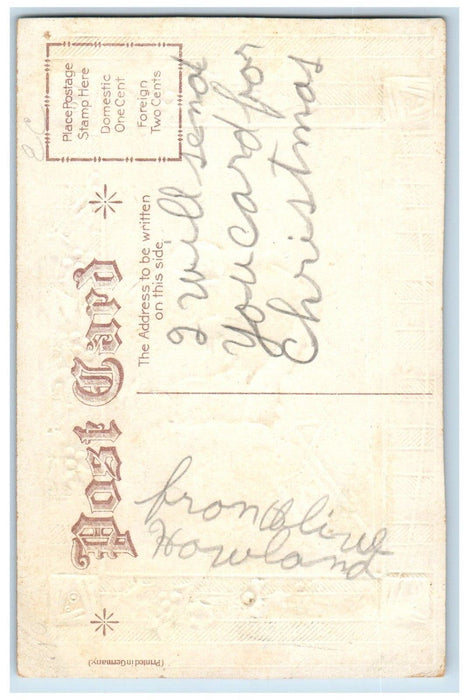 Post Card
Place Postage
Stamp Here
Domestic
One Cent
Foreign
Two Cents
The Address to be written
on this side.
I will send
you card for
Christmas
from Olive
Howland
(Printed in Germany)